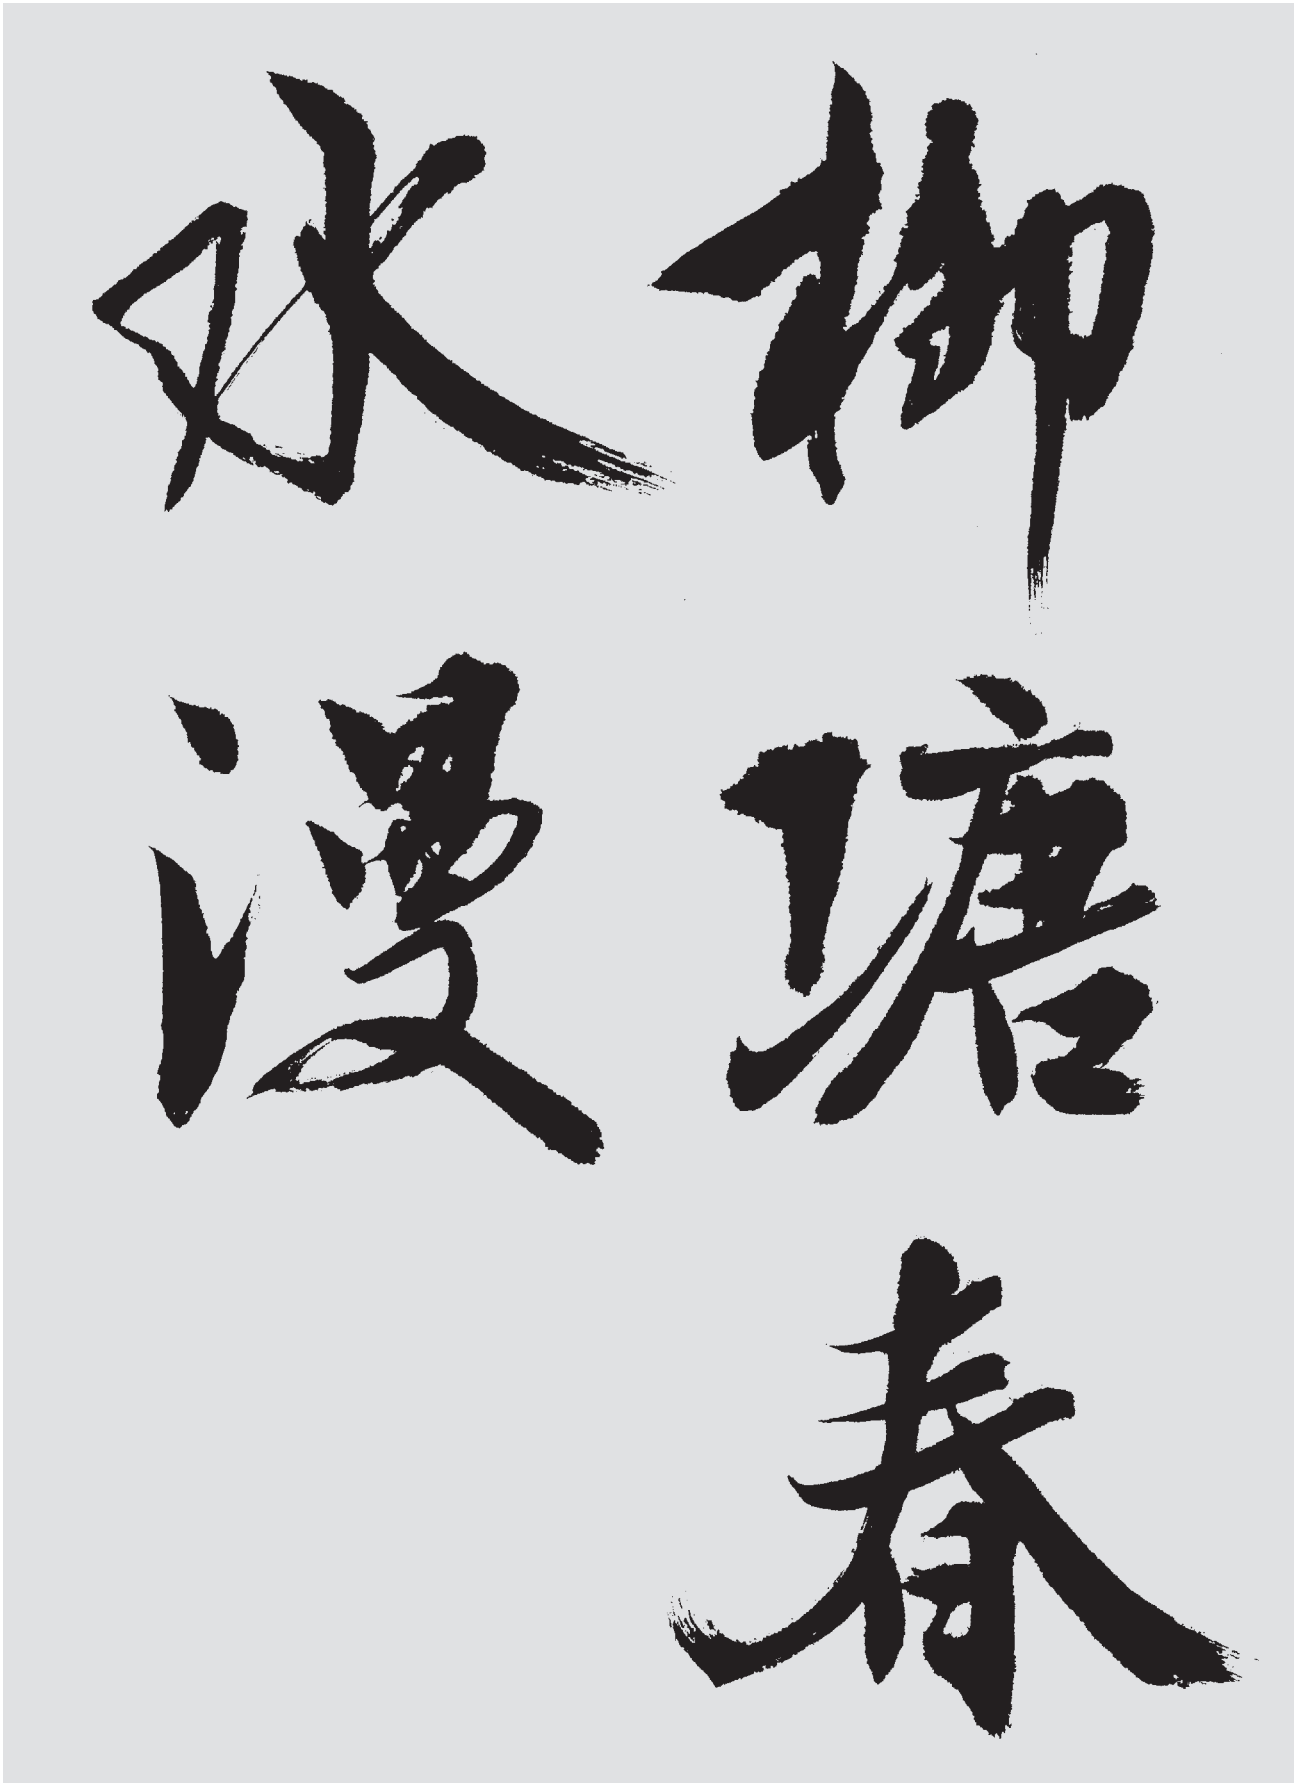 柳塘春
水漫